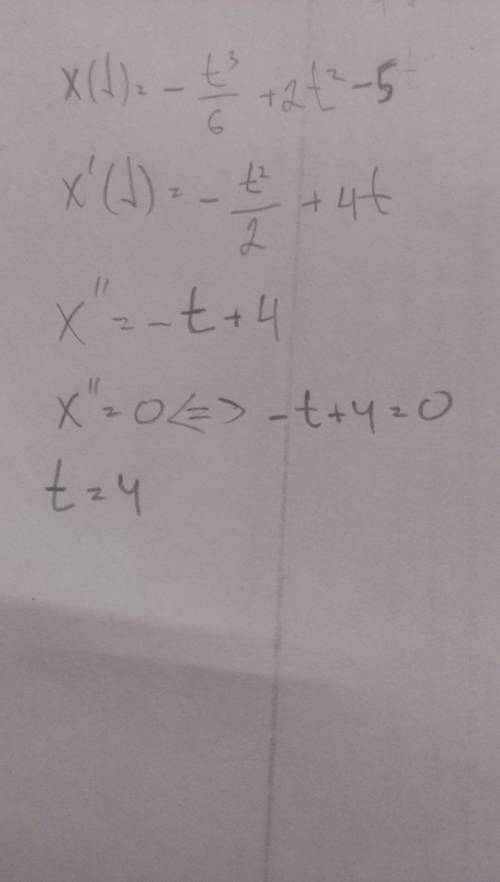 x(t)= -t³/6 +2t² -5
x'(t)= -t²/2 + 4t
x''= -t+4
x''=0<=> -t+4=0
t=4